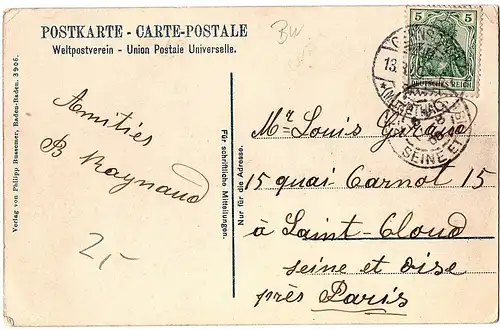 POSTKARTE - CARTE-POSTALE
Weltpostverein - Union Postale Universelle.
BW
5 5
DEUTSCHES REICH
13.
SEINE ET
Amitiés
B Raynaud
2,-
Verlag von Philipp Bussemer, Baden-Baden. 3906.
Für schriftliche Mitteilungen.
Nur für die Adresse.
Mr Louis
15 quai Carnot 15
à Saint-Cloud
seine et oise
près Paris